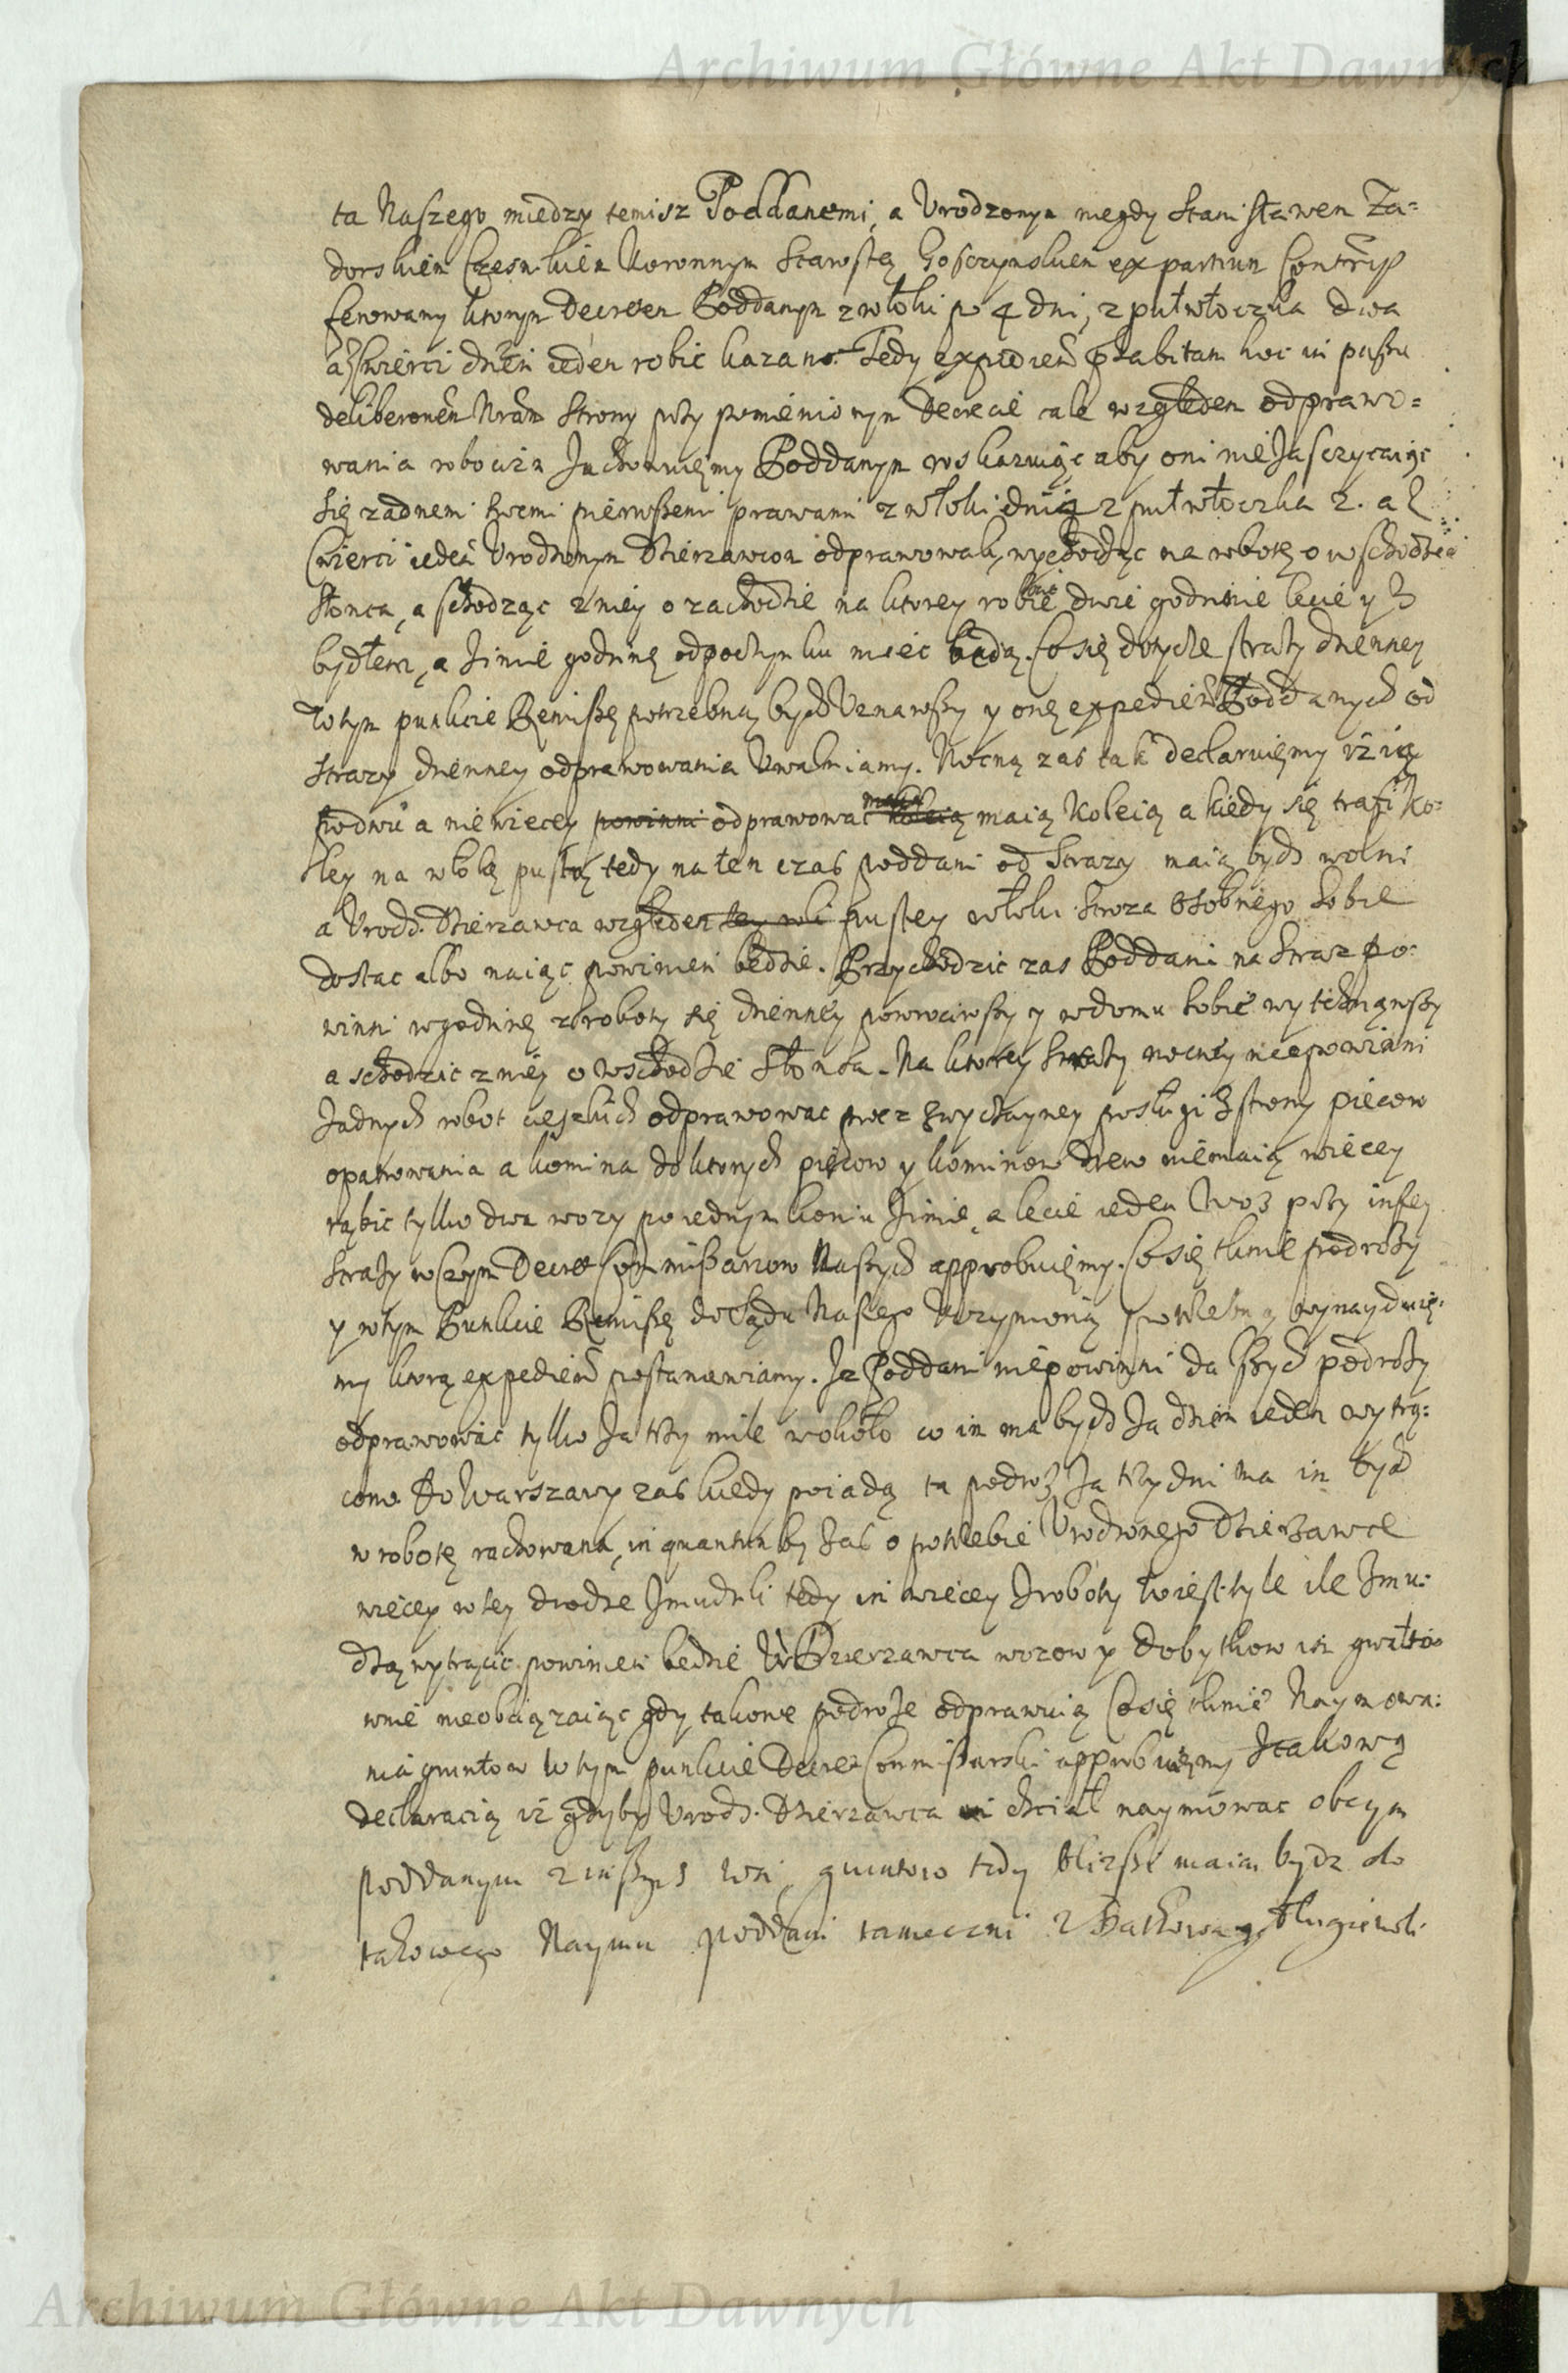 Archiwum Główne Akt Dawnych
ta Naszego miedzy temisz Poddanemi, a Urodzonym niegdy Stanisławem Za=
dorskiem Czesnikiem Koronnym Starostą Gosczynskiem ex partium
ferowany ktorym Decretem Poddanym z włoki po 4 dni, z pułwłoczka dwa
a z cwierci dzien ieden robic kazano. Tedy hoc in passu
Strony przy pomienionym Decrecie cale względem odprawo=
wania robocizn Poddanym wskazuiąc aby oni nie zasczycaiąc
się zadnemi swemi pierwszemi prawami z włoki dni 4 z pułwłoczka 2. a z
Cwierci ieden Urodzonym Dzierzawcom odprawowali, wychodząc na robotę o wschodzie
słonca, a schodząc z niey o zachodzie na ktorey robić dwie godzinie lecie y z
bydłem, a zimie godzinę odpoczynku miec będą. Co się dotycze strazy dzienney
w tym punkcie Remissę potrzebną bydź uznawszy y onę Poddanych od
strazy dzienney odprawowania uwalniamy. Nocną zas tak declaruięmy iż ią
po dwu a nie wiecey powinni odprawować maią koleią maią koleią a kiedy się trafi ko=
ley na włokę pustą tedy na ten czas poddani od strazy maią bydz wolni
a Urodz. Dzierzawca względem tey roli pustey włoki stroza osobnego sobie
dostac albo naiąc powinien bedzie. Przychodzic zas Poddani na straz po=
winni w godzinę z roboty się dzienney powrociwszy y w domu sobie wytchnąwszy
a schodzic z niey o wschodzie słonca. Na ktorey strazy nocney nie powinni
zadnych robot cięszkich odprawowac procz zwyczayney posługi z strony piecow
opatrowania a komina do ktorych piecow y kominow drew nie maią wiecey
rąbic tylko dwa wozy po iednym koniu zimie, a lecie ieden woz przy inszey
strazy w czym Decret Commissarzow Naszych approbuięmy. Co się tknie podrozy
y w tym Punkcie Remissę do Sądu Naszego uczynioną potrzebną wynayduię=
my ktorą postanawiamy. Iz Poddani nie powinni dalszych podrozy
odprawowac tylko za trzy mile wokoło co im ma bydz za dzien ieden wytrą=
cono. Do Warszawy zas kiedy poiadą ta podroz za trzy dni ma im bydz
w robotę rachowana, in quantum by zas o potrzebie Urodzonego Dzierzawce
wiecey w tey drodze zmudzili tedy im wiecey z roboty to iest tyle ile zmu=
dzą wytrącic powinien bedzie Ur Dzierzawca wozow y dobytkow im gwałto
wnie nieobciązaiąc gdy takowe podroze odprawuią Co się tknie Naymowa=
nia gruntow w tym punkcie Decret Commissarski approbuięmy z takową
declaracią iż gdyby Urodz. Dzierzawca chciał naymowac obcym
poddanym z inszych wsi, gruntow tedy blizsi maią bydz do
takowego Naymu poddani tameczni
Archiwum Główne Akt Dawnych